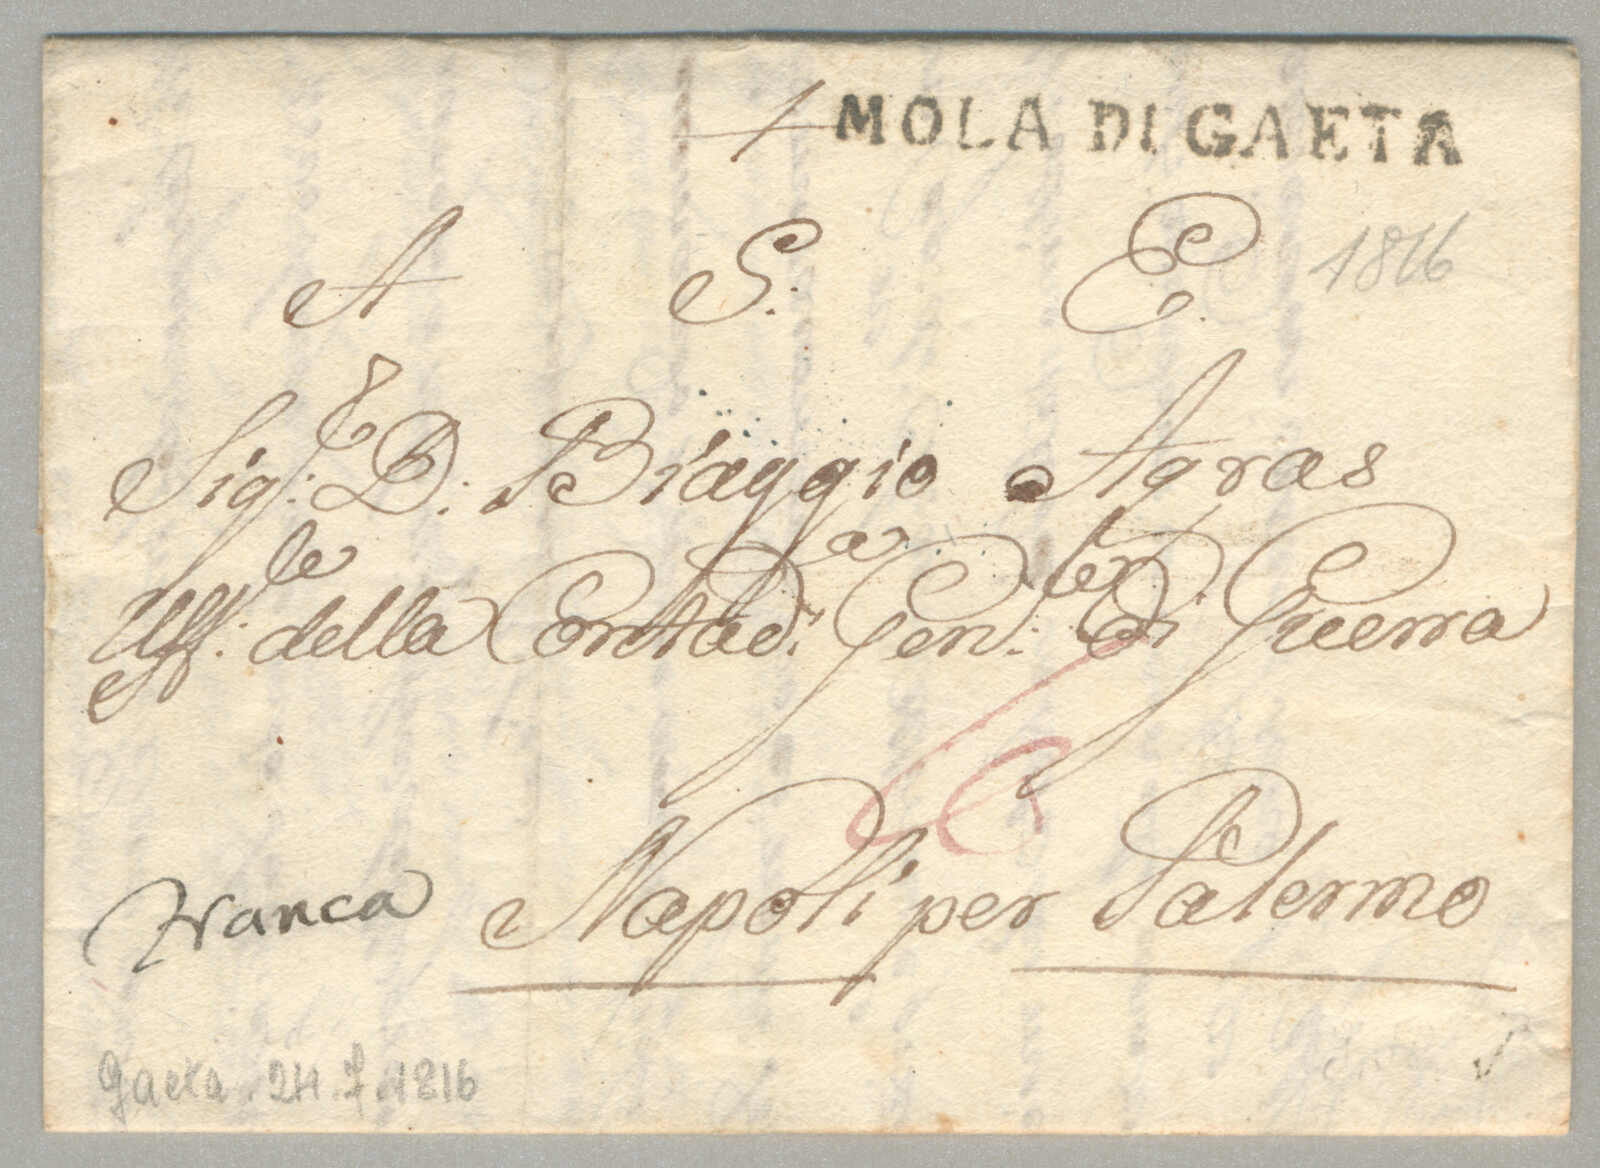 MOLA DI GAETA
A S. E.
1816
Sig:r D: Biaggio Agras
Uff:le della Contad:a Gen:le di Guerra
Franca
Napoli per Palermo
Gaeta. 24.7.1816